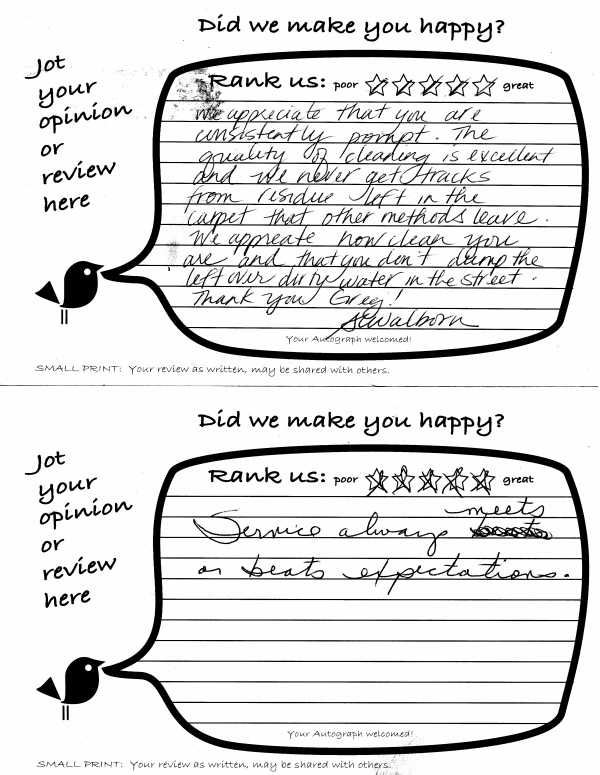 Did we make you happy?
Jot
your
opinion
or
review
here
Rank us: poor great
We appreciate that you are
consistently pompt. The
quality of cleaning is excellent
and we never get tracks
from residue left in the
carpet that other methods leave.
We appreate how clean you
are and that you don't dump the
left over dirty water in the street.
Thank you Greg!
Your Autograph welcomed!
SMALL PRINT: Your review as written, may be shared with others.
Did we make you happy?
Jot
your
opinion
or
review
here
Rank us: poor great
meets
Service always
or beats expectations.
Your Autograph welcomed!
SMALL PRINT: Your review as written, may be shared with others.